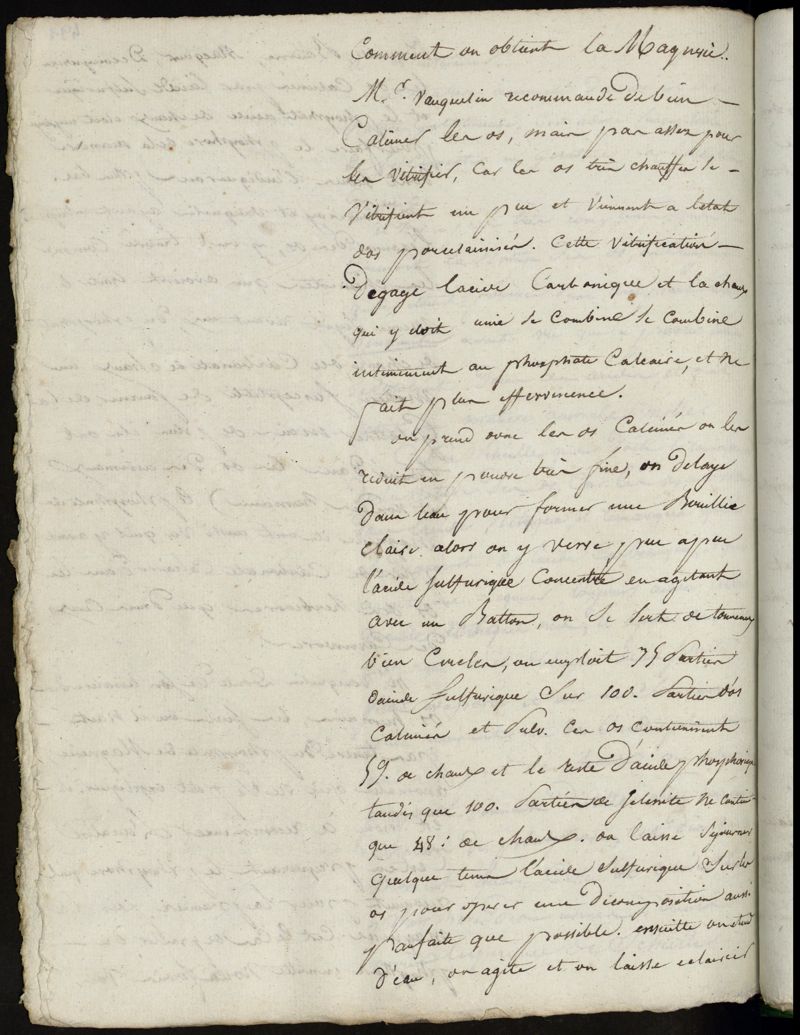 Comment on obtient la Magnesie.
Mr. Vauquelin recommande de bien
Calciner les os, mais pas assez pour
les vitrifier, Car les os très chauffés se
vitrifient un peu et viennent a letat
dos porcelainisés. Cette vitrification
Degage lacide Carbonique et la chaux
qui y doit unie se combine se combine
intimement au phosphate Calcaire, et ne
fait plus effervescence.
on prend donc les os Calcinés on les
reduit en poudre très fine, on delaye
Dans leau pour former une Bouillie
claire. alors on y verse peu a peu
l'acide Sulfurique Concentré en agitant
avec un Batton, on se sert de tonneaux
bien Cerclés, on employt 75 Parties
dacide Sulfurique Sur 100. Parties d'os
Calcinés et Pulv. Ces os contiennent
59. de chaux et le reste D'acide phosphorique
tandis que 100. Parties de Selenite ne contien
que 48: de chaux. on laisse Sejourner
quelque tems l'acide Sulfurique Sur les
os pour operer une Décomposition aussi
parfaite que possible. ensuitte on etend
D'eau, on agite et on laisse eclaircir